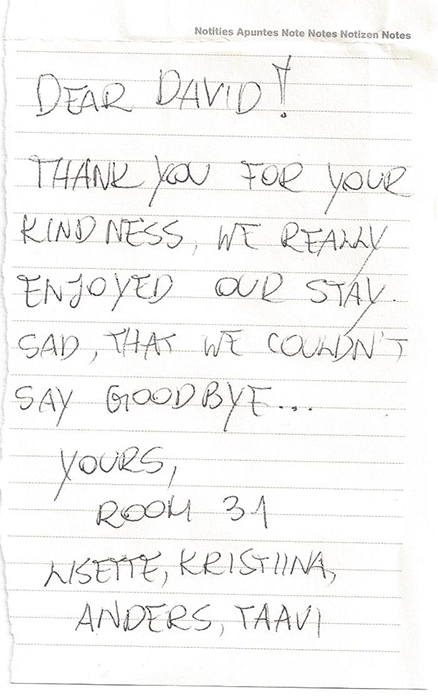 Notities Apuntes Note Notes Notizen Notes
DEAR DAVID!
THANK YOU FOR YOUR
KINDNESS, WE REALLY
ENJOYED OUR STAY.
SAD, THAT WE COULDN'T
SAY GOODBYE...
YOURS,
ROOM 31
LISETTE, KRISTIINA,
ANDERS, TAAVI